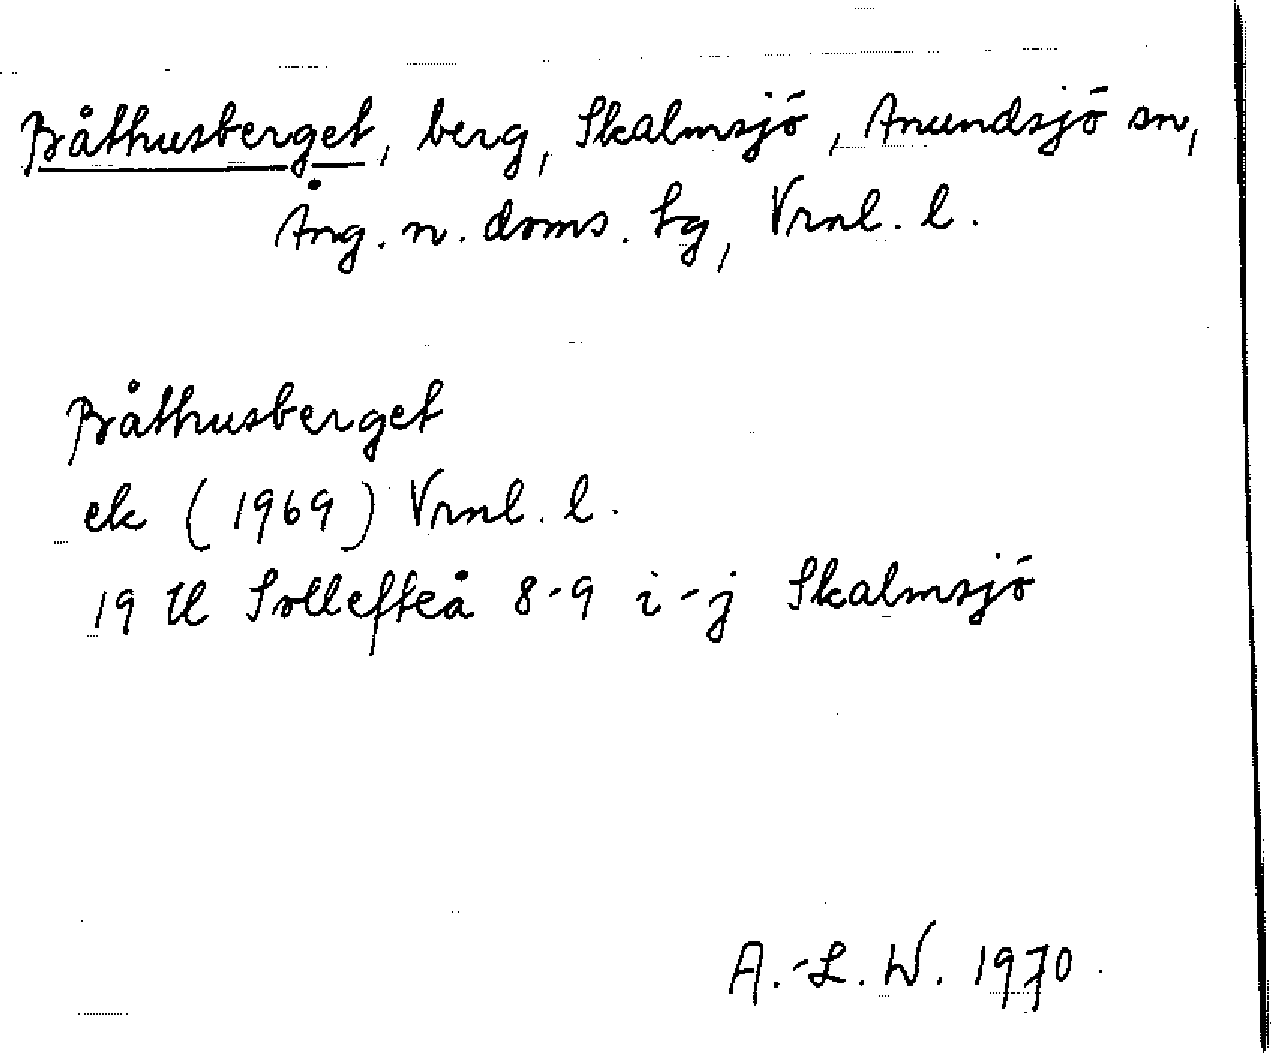 Båthusberget, berg, Skalmsjö, Anundsjö sn,
Ång. n. doms. tg, Vrnl. l.
Båthusberget
ek (1969) Vrnl. l.
19 H Sollefteå 8-9 i-j Skalmsjö
A.-L. W. 1970.